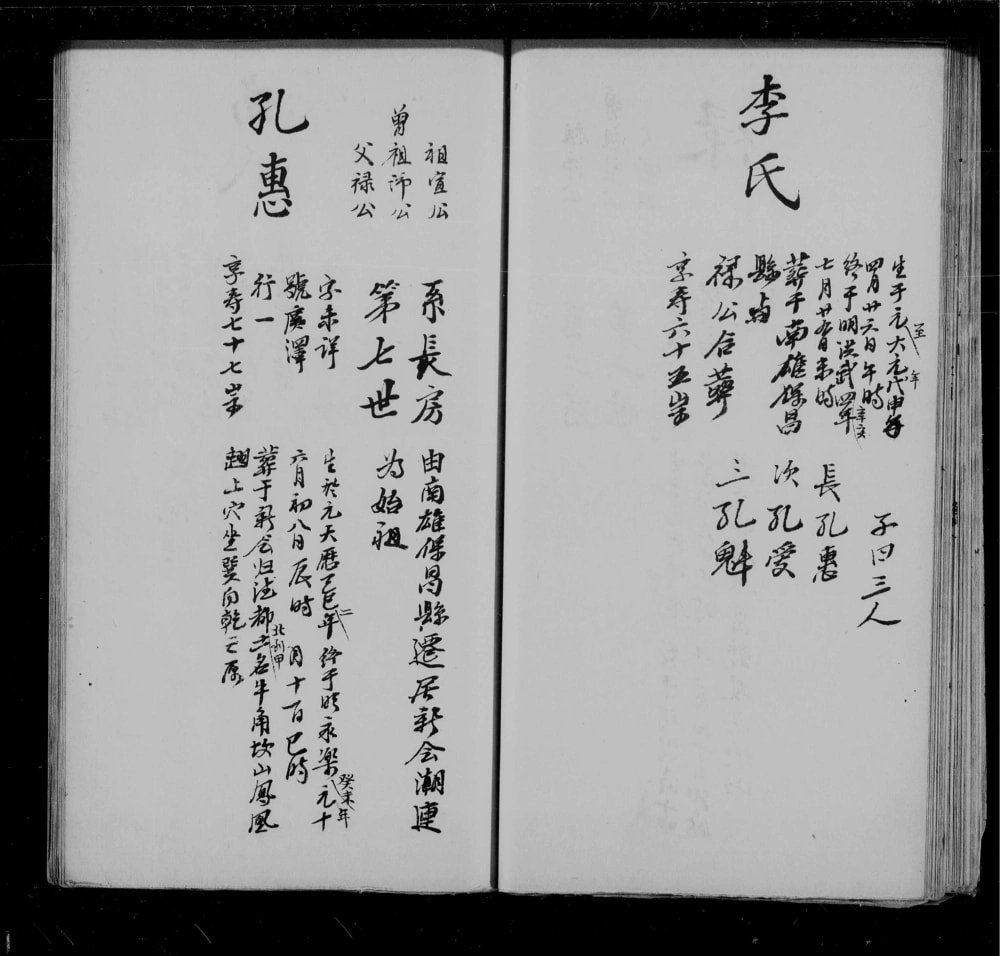 李氏
生于元至大元年戊申年
四月廿六日午時
終于明洪武四年辛亥
七月廿五日未時
葬于南雄保昌
縣與
祿公合葬
享寿六十五歲
子曰三人
長孔惠
次孔愛
三孔魁
祖宣公
曾祖沛公
父禄公
孔惠
系長房
第七世
字未詳
號廣澤
行一
享寿七十七歲
由南雄保昌縣遷居新会潮連
为始祖
生於元天曆二己巳年終于明永樂元癸未年十
六月初八日辰時 月十一日巳時
葬于新会归德都北到甲土名牛角坎山鳳凰
翅上穴坐巽向乾之原